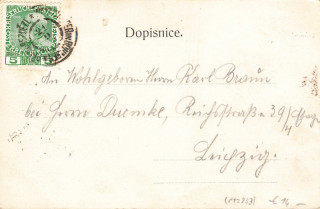 5
Dopisnice.
An Wohlgeboren Herrn Karl Braun
bei Herrn Duemke, Reichsstraße 39/4 Etage
Leichzig.